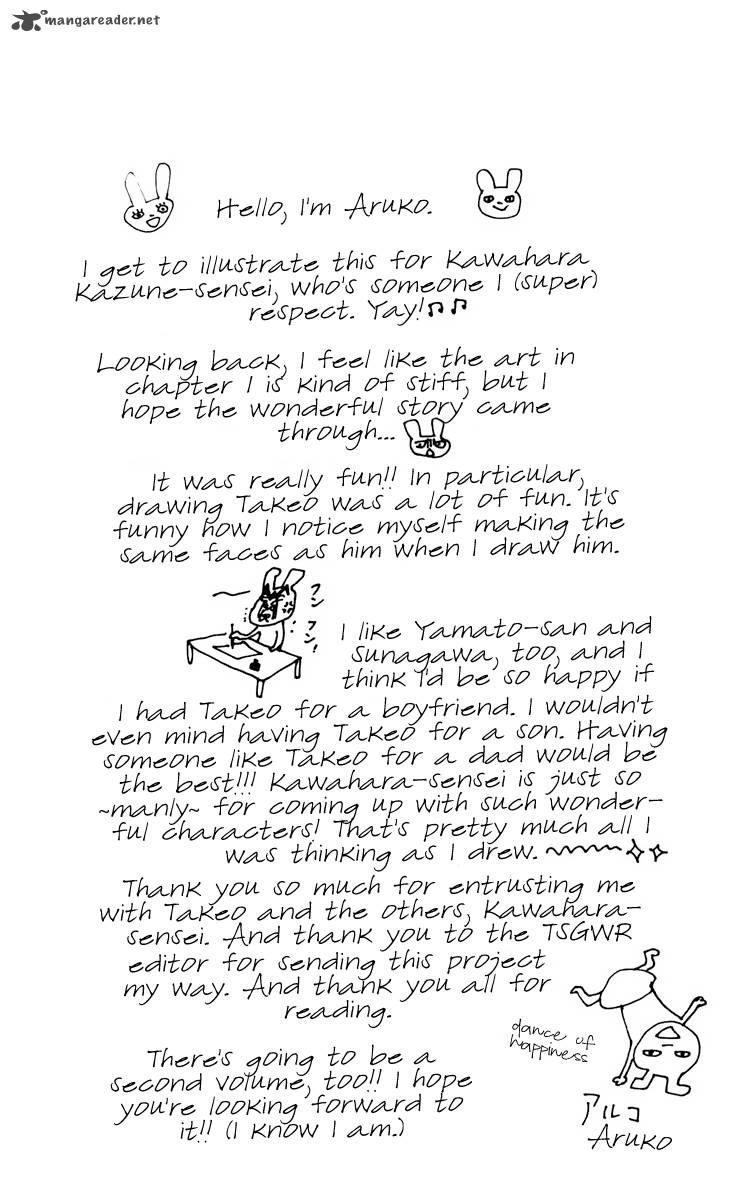 mangareader.net
Hello, I'm Aruko.
I get to illustrate this for Kawahara
Kazune-sensei, who's someone I (super)
respect. Yay!♫♫
Looking back, I feel like the art in
chapter 1 is kind of stiff, but I
hope the wonderful story came
through...
It was really fun!! In particular,
drawing Takeo was a lot of fun. It's
funny how I notice myself making the
same faces as him when I draw him.
フン
フン!
I like Yamato-san and
Sunagawa, too, and I
think I'd be so happy if
I had Takeo for a boyfriend. I wouldn't
even mind having Takeo for a son. Having
someone like Takeo for a dad would be
the best!!! Kawahara-sensei is just so
~manly~ for coming up with such wonder-
ful characters! That's pretty much all I
was thinking as I drew.
Thank you so much for entrusting me
with Takeo and the others, Kawahara-
sensei. And thank you to the TSGWR
editor for sending this project
my way. And thank you all for
reading.
dance of
happiness
There's going to be a
second volume, too!! I hope
you're looking forward to
it!! (I know I am.)
アルコ
Aruko